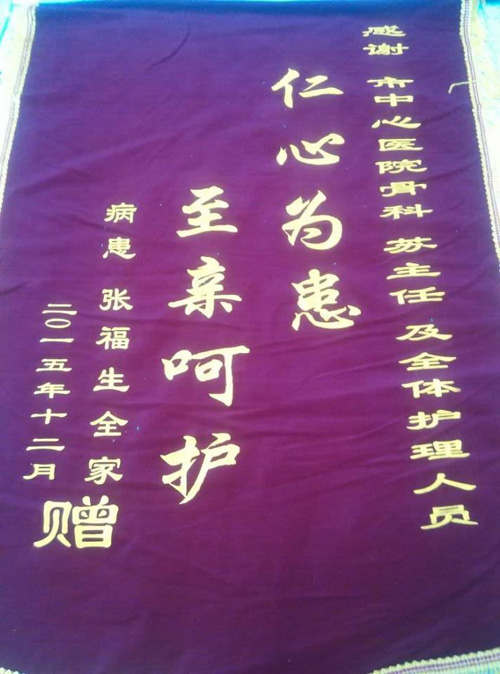 感谢 市中心医院骨科 苏主任 及全体护理人员
仁心为患
至亲呵护
病患 张福生全家
二〇一五年十二月
赠